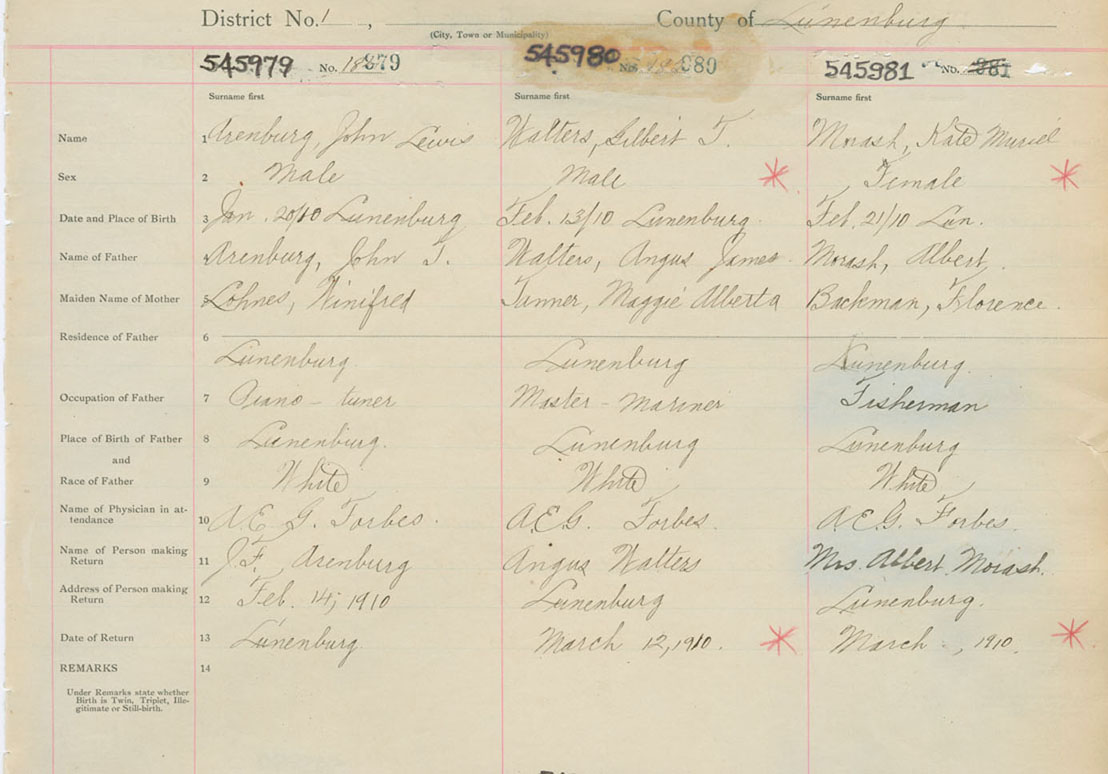 District No. 1 , County of Lunenburg
(City, Town or Municipality)
545979 No. 879 545980 No. 980 545981 No. 981
Surname first Surname first Surname first
Name 1 Arenburg, John Lewis Walters, Gilbert T. Morash, Kate Muriel
Sex 2 Male Male * Female *
Date and Place of Birth 3 Jan. 20/10 Lunenburg Feb. 13/10 Lunenburg. Feb. 21/10 Lun.
Name of Father 4 Arenburg, John J. Walters, Angus James. Morash, Albert.
Maiden Name of Mother 5 Lohnes, Winifred Tanner, Maggie Alberta Backman, Florence.
Residence of Father 6
Lunenburg. Lunenburg Lunenburg.
Occupation of Father 7 Piano - tuner Master - Mariner Fisherman
Place of Birth of Father 8 Lunenburg. Lunenburg Lunenburg
and
Race of Father 9 White White White
Name of Physician in at-
tendance 10 A.E.G. Forbes. A.E.G. Forbes. A.E.G. Forbes.
Name of Person making
Return 11 J.F. Arenburg Angus Walters Mrs. Albert Morash.
Address of Person making
Return 12 Feb. 14, 1910 Lunenburg Lunenburg.
Date of Return 13 Lunenburg March 12, 1910. * March , 1910. *
REMARKS 14
Under Remarks state whether
Birth is Twin, Triplet, Ille-
gitimate or Still-birth.